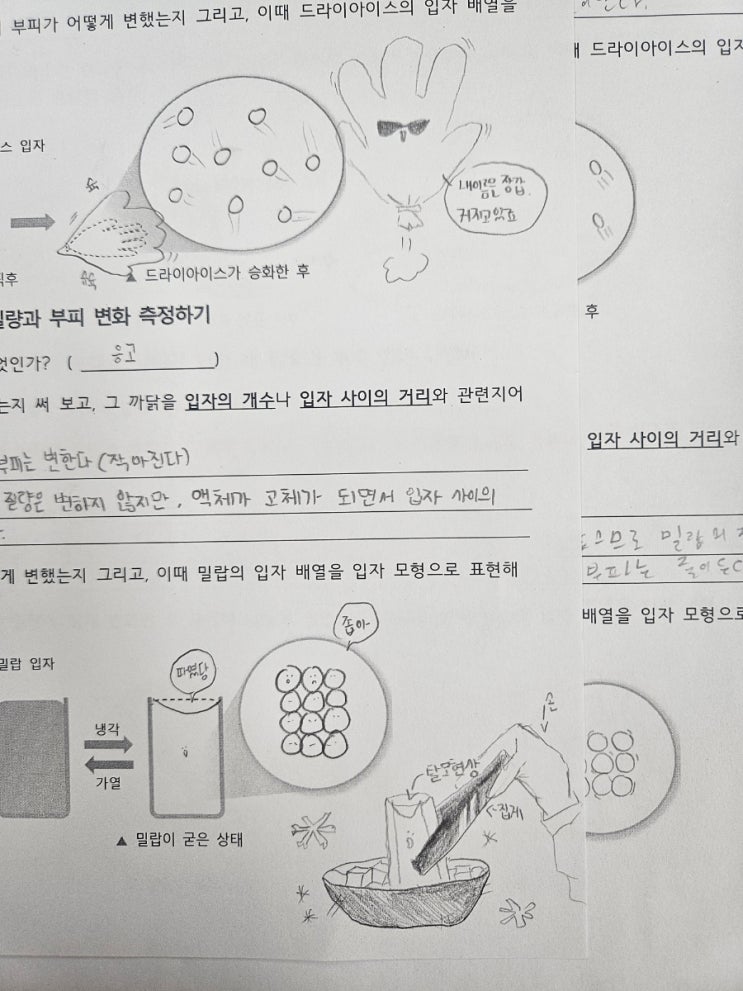 부피가 어떻게 변했는지 그리고, 이때 드라이아이스의 입자 배열을
스 입자
내이름은 장갑.
커지고있죠
슈욱
▲ 드라이아이스가 승화한 후
질량과 부피 변화 측정하기
엇인가? ( 응고 )
는지 써 보고, 그 까닭을 입자의 개수나 입자 사이의 거리와 관련지어
부피는 변한다 (작아진다)
질량은 변하지 않지만, 액체가 고체가 되면서 입자 사이의
게 변했는지 그리고, 이때 밀랍의 입자 배열을 입자 모형으로 표현해
밀랍 입자
파였당
좁아
냉각
가열
▲ 밀랍이 굳은 상태
탈모현상
손
집게
드라이아이스의 입자
후
입자 사이의 거리와
므로 밀랍의
부피는 줄어든다
배열을 입자 모형으로